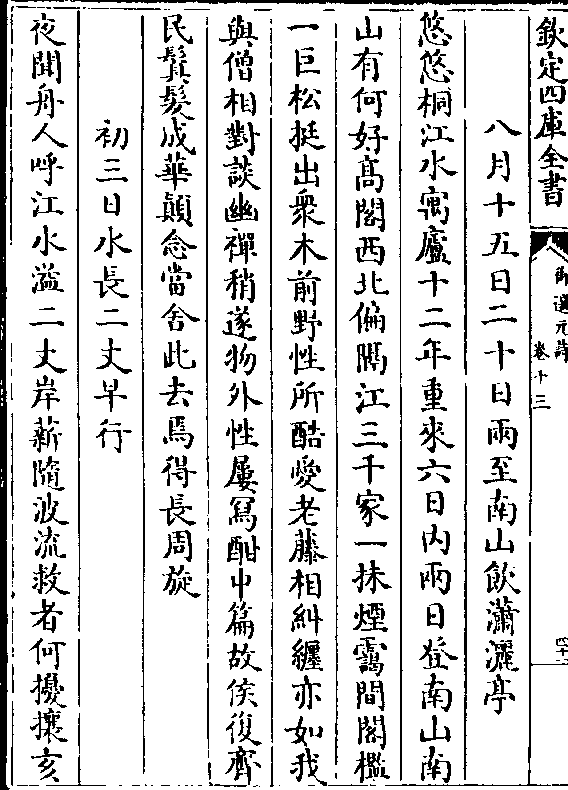 欽定四庫全書
御選元詩
卷十三
四十二
八月十五日二十日兩至南山飲瀟灑亭
悠悠桐江水寓廬十二年重來六日内兩日登南山南
山有何好髙閣西北偏隔江三千家一抹煙靄間閣檻
一巨松挺出衆木前野性所酷愛老藤相糾纒亦如我
與僧相對談幽禪稍遂物外性屢冩酣中篇故侯復齊
民鬂髮成華顛念當舍此去焉得長周旋
初三日水長二丈早行
夜聞舟人呼江水溢二丈岸薪隨波流救者何擾攘亥